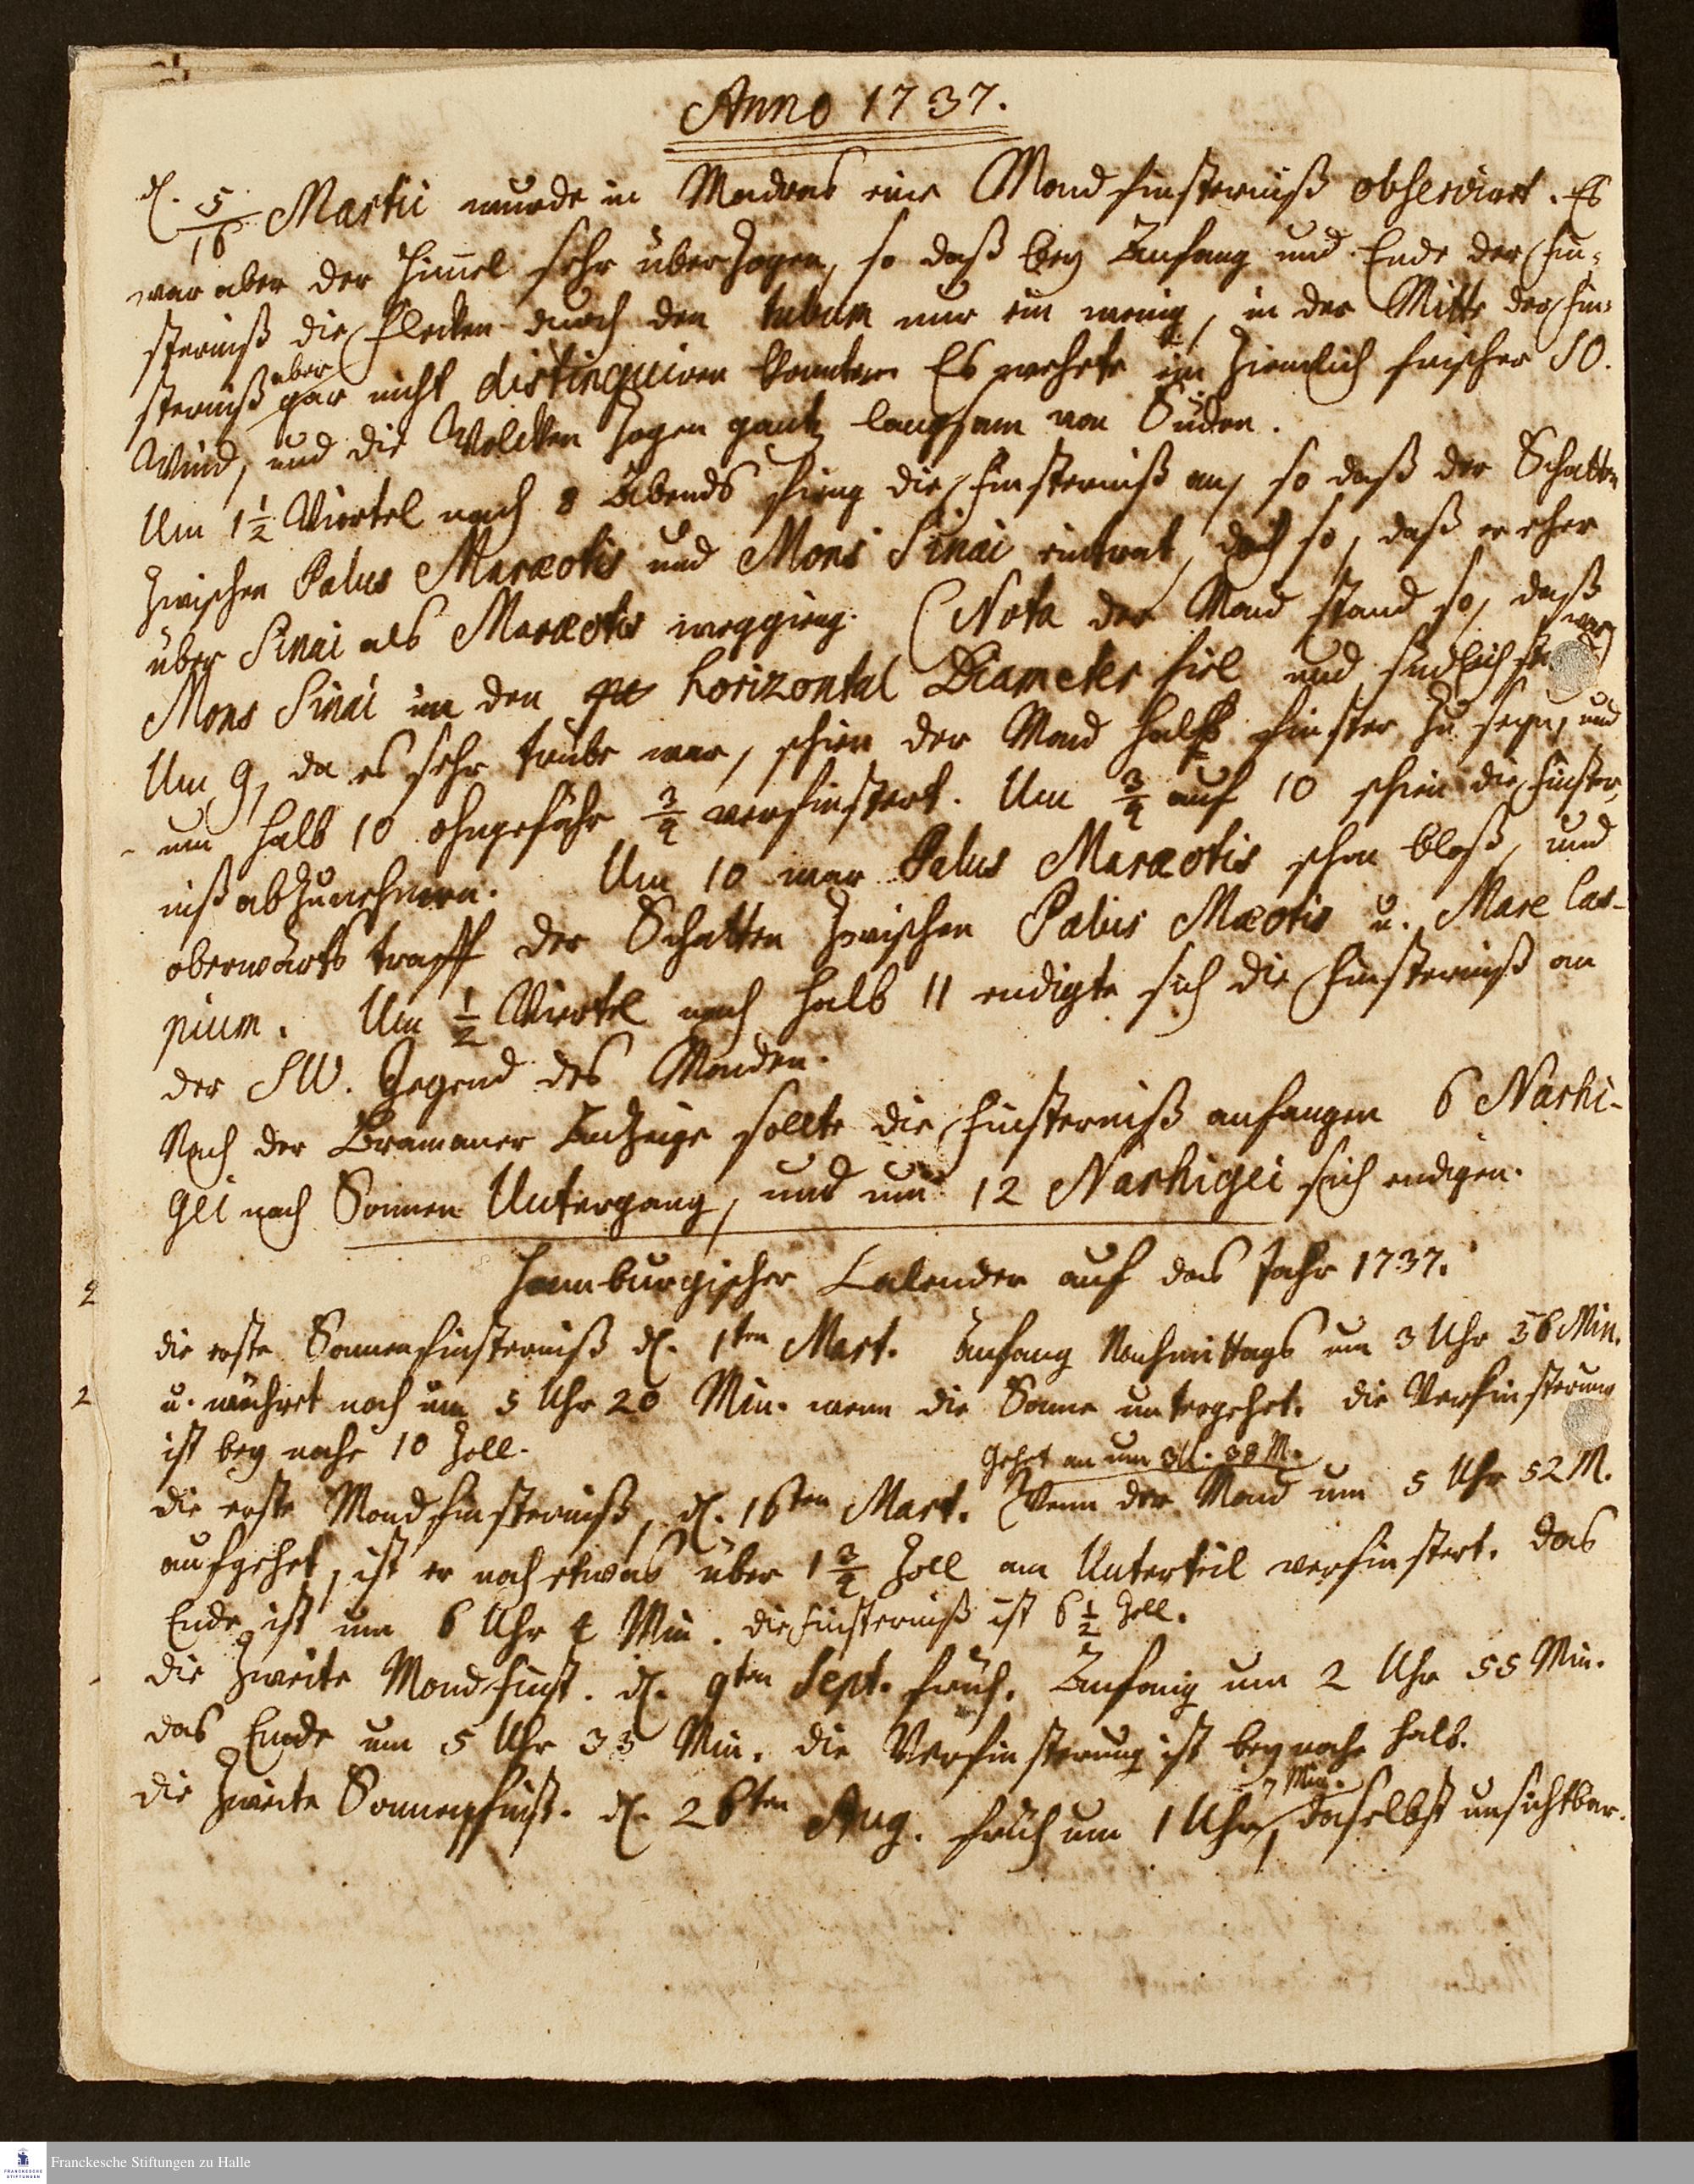 Anno 1737.
d. 5/16 Martii wurde in Madras eine Mondfinsterniß observirt. Es
war aber der Himel sehr überzogen, so daß bey Anfang und Ende der Fin-
sterniß die Flecken durch den tubum nur ein wenig, in der Mitte der Fin-
sterniß aber gar nicht distinguiren konten. Es wehete ein ziemlich frischer SO.
Wind, und die Wolcken zogen gantz langsam von Süden.
Um 1 1/2 Viertel nach 8 Abends fieng die Finsterniß an, so daß der Schatten
zwischen Palus Maræotis und Mons Sinai eintrat, doch so, daß er eher
über Sinai als Maræotis weggieng. (Nota der Mond stand so, daß
Mons Sinai in den horizontal Diameter fiel und südlich war)
Um 9, da es sehr trübe war, schien der Mond halb finster zu seyn, und
um halb 10 ohngefähr 3/4 verfinstert. Um 3/4 auf 10 schien die Finster-
niß abzunehmen. Um 10 war Palus Maræotis schon bloß, und
oberwärts traff der Schatten zwischen Palus Mæotis u. Mare Cas-
pium. Um 1/2 Viertel nach halb 11 endigte sich die Finsterniß an
der SW. Gegend des Monden.
Nach der Bramaner Anzeige sollte die Finsterniß anfangen 6 Narhi-
gei nach Sonnen Untergang, und um 12 Narhigei sich endigen.
Hamburgischer Calender auf das Jahr 1737.
die erste Sonnenfinsterniß d. 1ten Mart. Anfang Nachmittags um 3 Uhr 56 Min.
u. währet noch um 5 Uhr 20 Min. wenn die Sonne untergehet. die Verfinsterung
ist bey nahe 10 Zoll.
gehet an um 3 U. 38 M.
die erste Mondfinsterniß, d. 16ten Mart. Wenn der Mond um 5 Uhr 52 M.
aufgehet, ist er noch etwas über 1 3/4 Zoll am Unterteil verfinstert. Das
Ende ist um 6 Uhr 4 Min. die Finsterniß ist 6 1/2 Zoll.
die zweite Mondfinst. d. 9ten Sept. früh. Anfang um 2 Uhr 55 Min.
das Ende um 5 Uhr 33 Min. die Verfinsterung ist bey nahe halb.
die zweite Sonnenfinst. d. 26ten Aug. früh um 1 Uhr 7 Min., daselbst unsichtbar.
Franckesche Stiftungen zu Halle